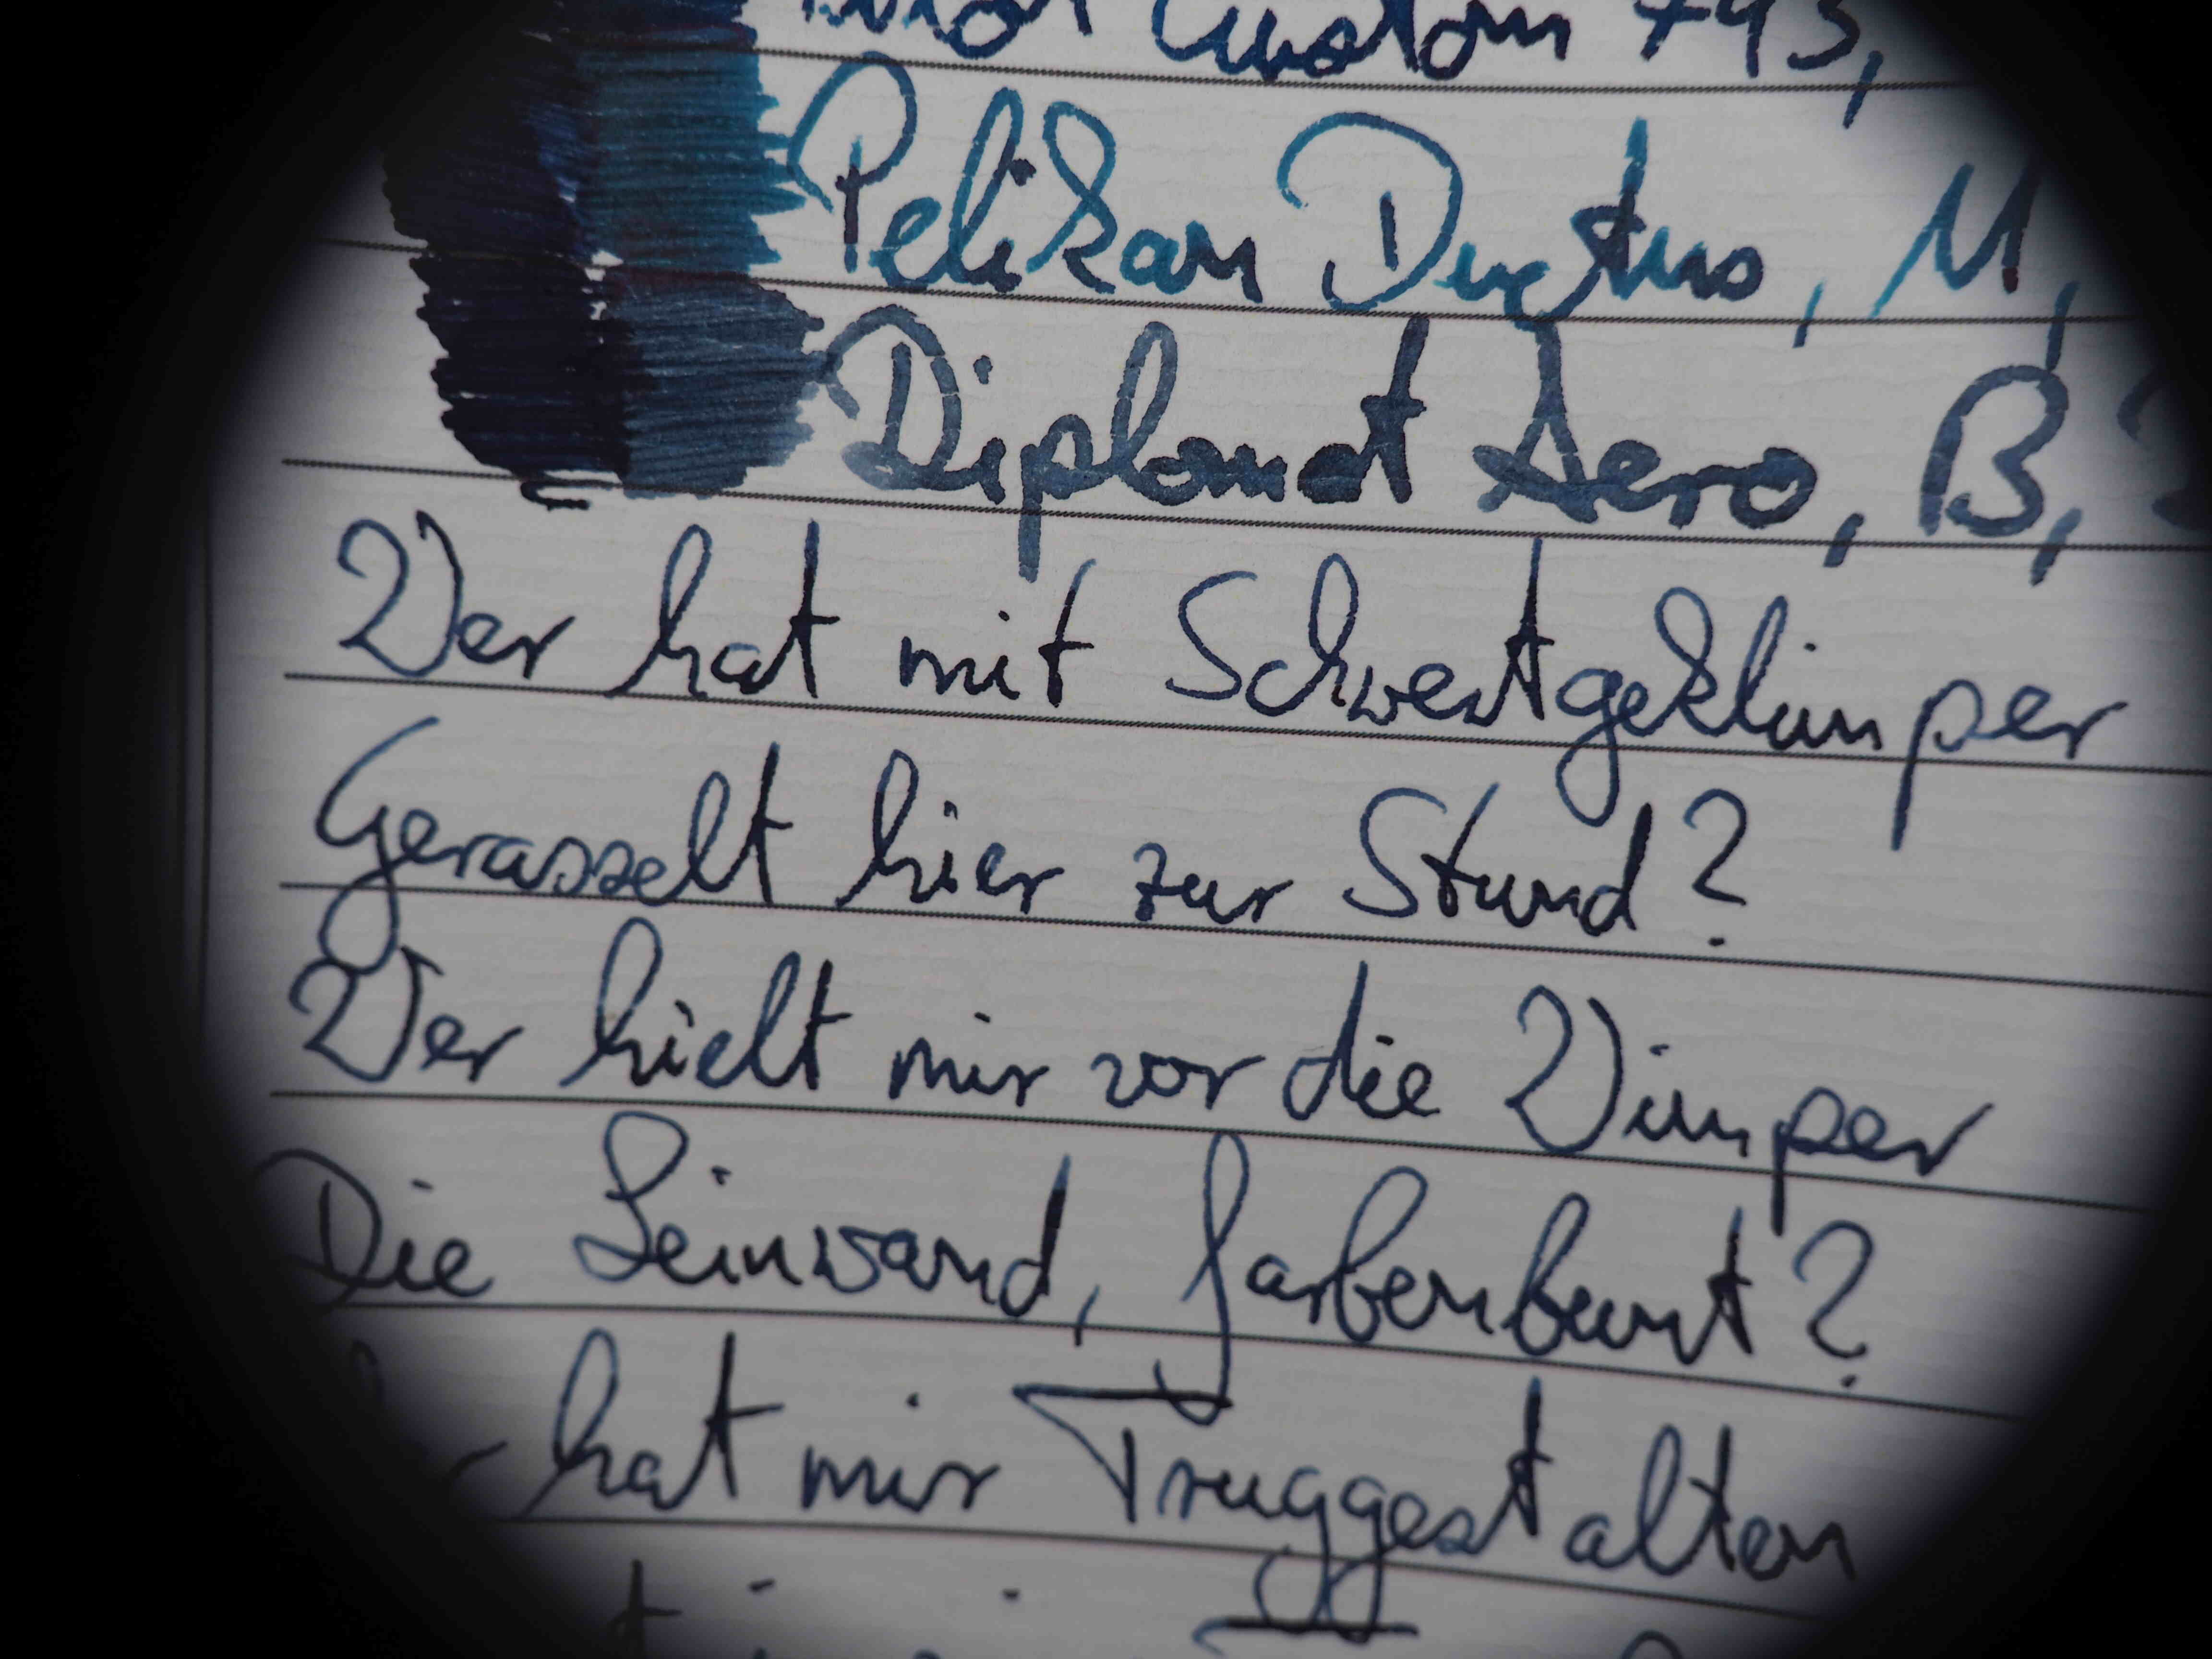 Custom 743,
Pelikan Ductus, M,
Diplomat Aero, B,
Wer hat mit Schwertgeklimper
Gerasselt hier zur Stund?
Wer hielt mir vor die Wimper
Die Leinwand, farbenbunt?
hat mir Truggestalten